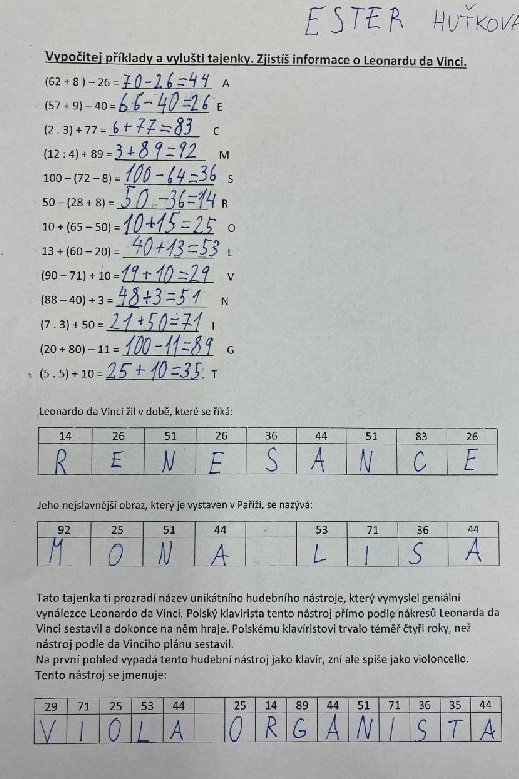 ESTER HUŤKOVA
Vypočítej příklady a vylušti tajenky. Zjistíš informace o Leonardu da Vinci.
(62 + 8) – 26 = 70-26=44 A
(57 + 9) – 40 = 66-40=26 E
(2 . 3) + 77 = 6+77=83 C
(12 : 4) + 89 = 3+89=92 M
100 – (72 – 8) = 100-64=36 S
50 – (28 + 8) = 50-36=14 R
10 + (65 – 50) = 10+15=25 O
13 + (60 – 20) = 40+13=53 L
(90 – 71) + 10 = 19+10=29 V
(88 – 40) + 3 = 48+3=51 N
(7 . 3) + 50 = 21+50=71 I
(20 + 80) – 11 = 100-11=89 G
(5 . 5) + 10 = 25+10=35 T
Leonardo da Vinci žil v době, které se říká:
14 26 51 26 36 44 51 83 26
R E N E S A N C E
Jeho nejslavnější obraz, který je vystaven v Paříži, se nazývá:
92 25 51 44 53 71 36 44
M O N A L I S A
Tato tajenka ti prozradí název unikátního hudebního nástroje, který vymyslel geniální
vynálezce Leonardo da Vinci. Polský klavírista tento nástroj přímo podle nákresů Leonarda da
Vinci sestavil a dokonce na něm hraje. Polskému klavíristovi trvalo téměř čtyři roky, než
nástroj podle da Vinciho plánu sestavil.
Na první pohled vypadá tento hudební nástroj jako klavír, zní ale spíše jako violoncello.
Tento nástroj se jmenuje:
29 71 25 53 44 25 14 89 44 51 71 36 35 44
V I O L A O R G A N I S T A